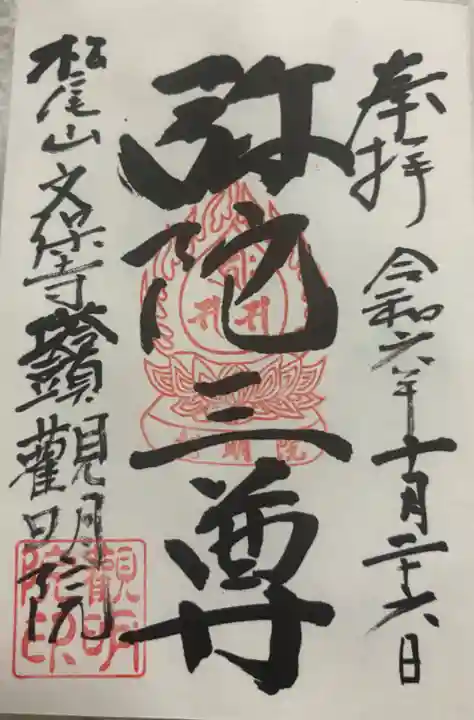 奉拝 令和六年十月二十六日
弥陀三尊
松尾山文保寺塔頭觀明院
觀明
院印
観明院